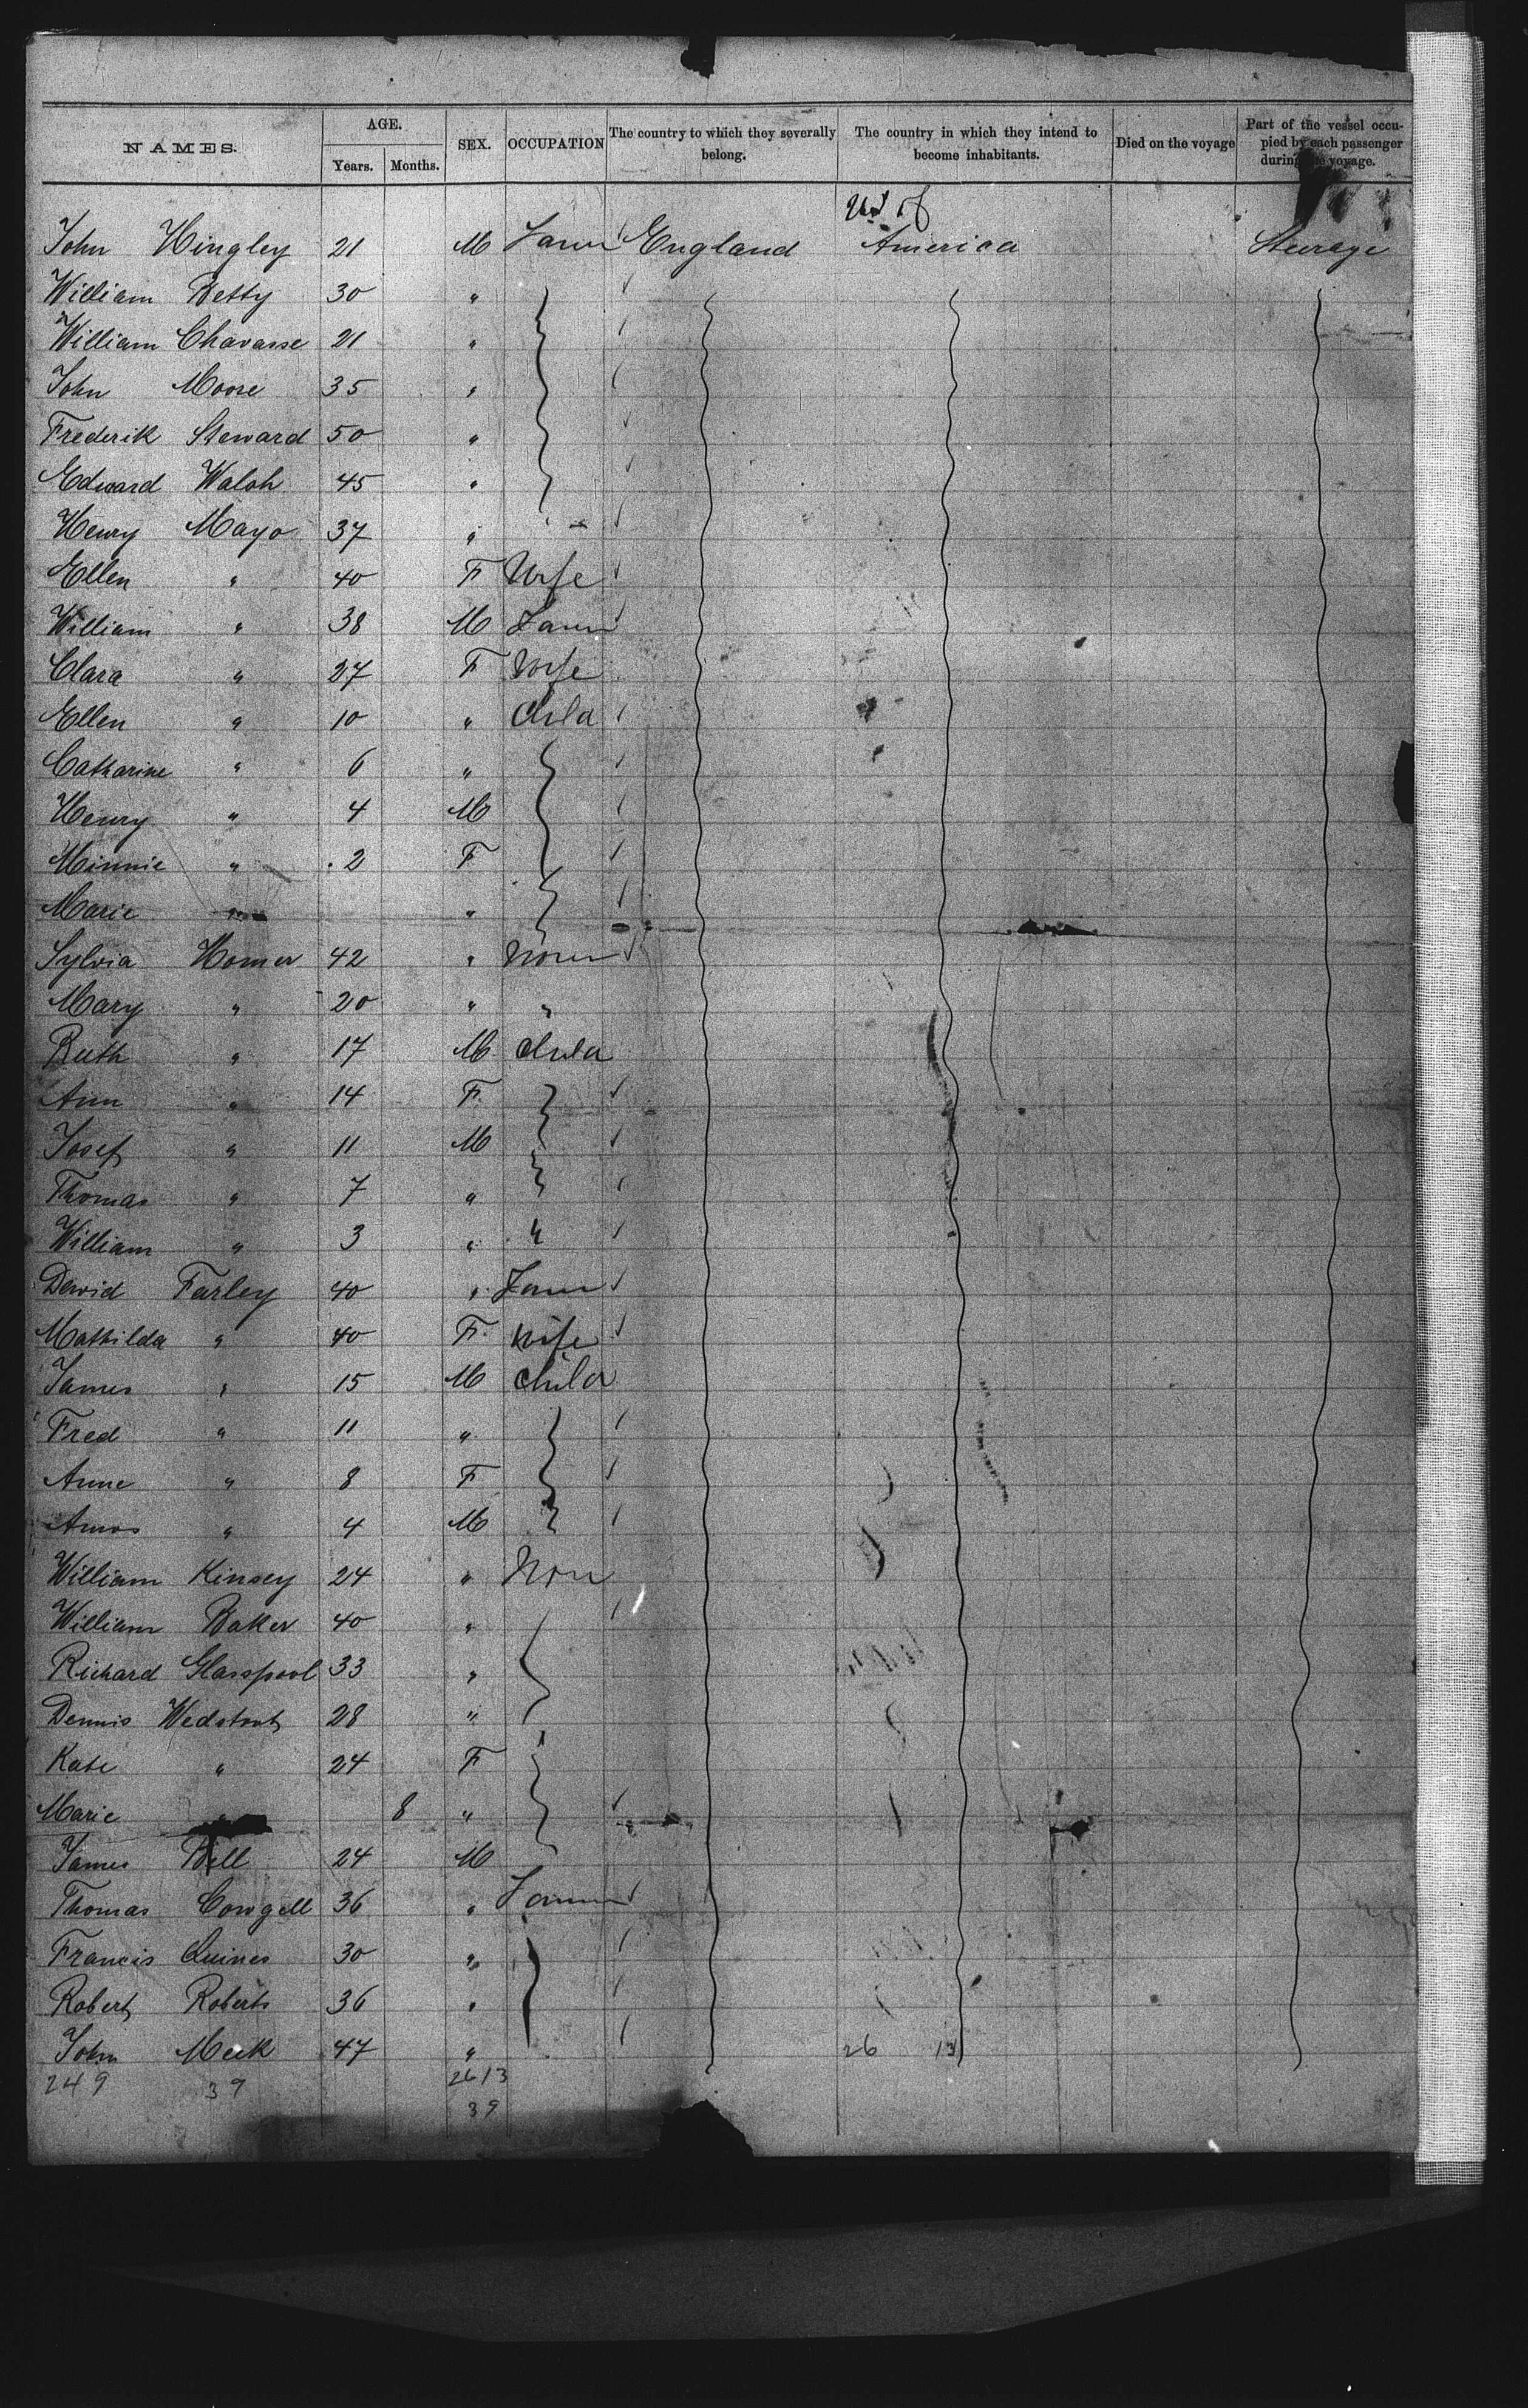 NAMES. AGE. Years. Months. SEX. OCCUPATION The country to which they severally belong. The country in which they intend to become inhabitants. Died on the voyage Part of the vessel occupied by each passenger during the voyage.
John Hingley 21 M Farm England America Steerage
William Betty 30 "
William Chavasse 21 "
John Moore 35 "
Frederik Steward 50 "
Edward Walsh 45 "
Henry Mayo 37 "
Ellen " 40 F Wife
William " 38 M Farm
Clara " 27 F Wife
Ellen " 10 " Child
Catharine " 6 "
Henry " 4 M
Minnie " 2 F
Marie " "
Sylvia Homer 42 "
Mary " 20 " "
Ruth " 17 M Child
Ann " 14 F
Josef " 11 M
Thomas " 7 "
William " 3 " "
David Farley 40 " Farm
Mathilda " 40 F. Wife
James " 15 M Child
Fred " 11 "
Anne " 8 F
Amos " 4 M
William Kinsey 24 " Non
William Baker 40 "
Richard Glasspool 33 "
Dennis 28 "
Kate " 24 F
Marie " 8 "
James Bell 24 M
Thomas Cowgell 36 " Farm
Francis Quines 30 "
Robert Roberts 36 "
John Meek 47 " 26 13
249 39 26 13
39